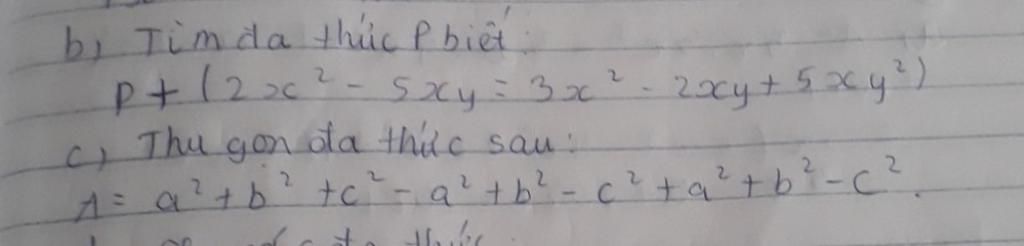 b, Tìm đa thức P biết:
P + (2x² - 5xy = 3x² - 2xy + 5xy²)
c, Thu gọn đa thức sau:
A = a² + b² + c² - a² + b² - c² + a² + b² - c².